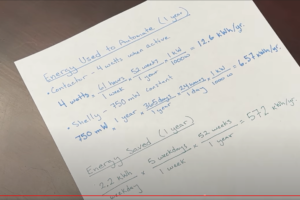 Energy Used to Automate (1 year)
• Contactor - 4 watts when active.
4 watts × 61 hours / 1 week × 52 weeks / 1 year × 1 kW / 1000W = 12.6 kWh/yr.
• Shelly - 750 mW constant
750 mW × 365 days / 1 year × 24 hours / 1 day × 1 kW = 6.57 kWh/yr.
Energy Saved (1 year)
2.2 kWh / weekday × 5 weekdays / 1 week × 52 weeks / 1 year = 572 kWh/yr.